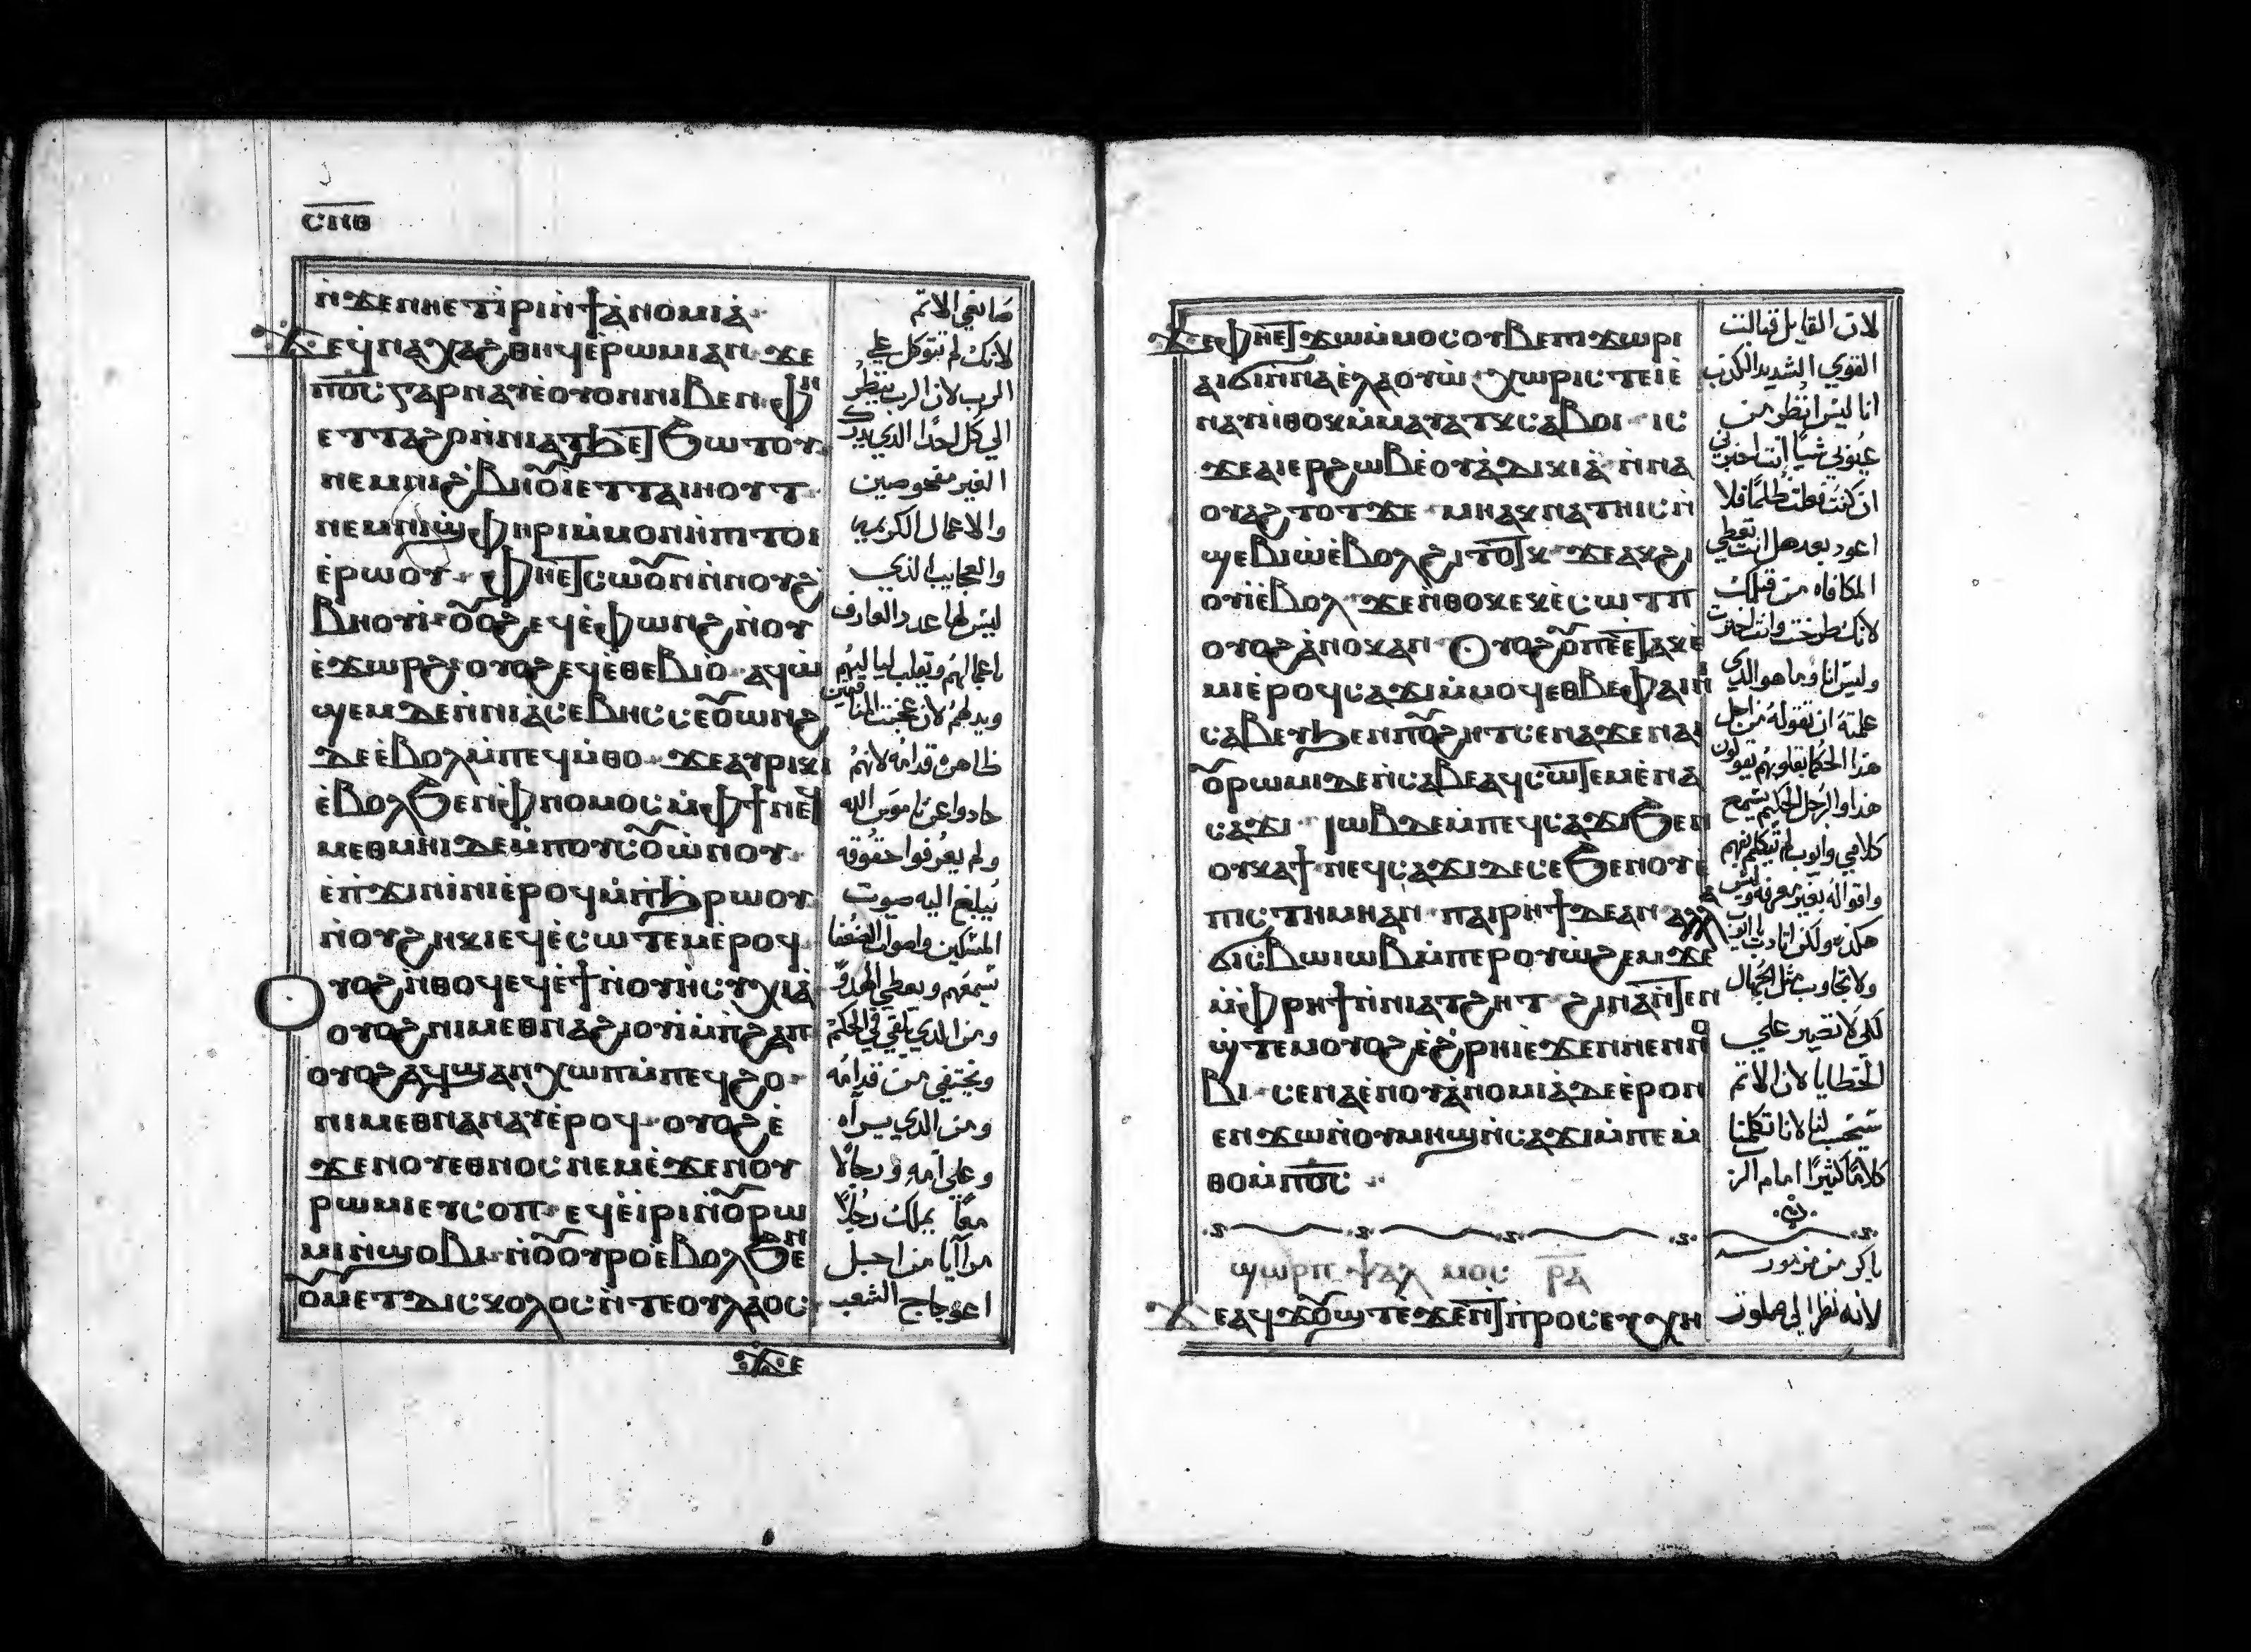 ⲥⲡⲑ
ⲛ̀ϫⲉⲛⲏⲉⲧⲓ̀ⲣⲓⲛ̀ϯⲁ̀ⲛⲟⲙⲓⲁ̀
ϫⲉϥ̀ⲛⲁⲭⲁϩⲑⲏϥⲉ̀ⲣⲱⲙⲓⲁⲛ ϫⲉ
ⲡⲟ̅ⲥ̅ⲅⲁⲣⲛⲁⲩⲉ̀ⲟⲩⲟⲛⲛⲓⲃⲉⲛ ⲫⲏ
ⲉⲧⲧⲁϩⲟⲛ̀ⲛⲓⲁⲧϧⲉⲧϧⲱⲧⲟⲩ
ⲛⲉⲙⲛⲓϩⲃⲏⲟⲩⲓⲉⲧⲧⲁⲓⲏⲟⲩⲧ
ⲛⲉⲙⲛⲓϣⲫⲏⲣⲓⲙ̀ⲙⲟⲛⲏⲡⲓ ⲧⲟⲓ
ⲉ̀ⲣⲱⲟⲩ ⲫⲏⲉⲧⲥⲱⲟⲩⲛⲛ̀ⲛⲟⲩϩ
ⲃⲏⲟⲩⲓ̀ ⲟⲩⲟϩⲉϥⲉ̀ⲫⲱⲛϩⲛ̀ⲟⲩ
ⲉ̀ϫⲱⲣϩ ⲟⲩⲟϩⲉϥⲉ̀ⲑⲉⲃⲓⲟ ⲁϥⲱ̀
ϣⲉⲙⲇⲉⲛ̀ⲛⲓⲁ̀ⲥⲉⲃⲏⲥ ⲥⲉⲟⲩⲱⲛϩ
ⲇⲉⲉ̀ⲃⲟⲗⲙ̀ⲡⲉϥⲙ̀ⲑⲟ ϫⲉⲁⲩⲣⲓⲕⲓ
ⲉ̀ⲃⲟⲗϧⲉⲛⲫ̀ⲛⲟⲙⲟⲥⲙ̀ⲫϯ ⲛⲉϥ
ⲙⲉⲑⲙⲏⲓⲇⲉⲙ̀ⲡⲟⲩⲥⲟⲩⲱⲛⲟⲩ
ⲉ̀ⲡϫⲓⲛⲓ̀ⲛⲓⲉ̀ⲣⲟϥⲙ̀ⲡϧⲣⲱⲟⲩ
ⲛ̀ⲟⲩϩⲏⲕⲓ ⲉϥⲉ̀ⲥⲱⲧⲉⲙⲉ̀ⲣⲟϥ
ⲟⲩⲟϩⲛ̀ⲑⲟϥⲉϥⲉ̀ϯⲛ̀ⲟⲩⲏⲥⲩⲭⲓⲁ̀
ⲟⲩⲟϩⲛⲓⲙⲉⲑⲛⲁϩⲓⲟⲩⲓ̀ⲙ̀ⲡϩⲁⲡ
ⲟⲩⲟϩⲁϥϣⲁⲛⲭⲱⲡⲙ̀ⲡⲉϥϩⲟ
ⲛⲓⲙⲉⲑⲛⲁⲛⲁⲩⲉ̀ⲣⲟϥ ⲟⲩⲟϩⲉ̀
ϫⲉⲛⲟⲩⲉⲑⲛⲟⲥⲛⲉⲙⲉ̀ϫⲉⲛⲟⲩ
ⲣⲱⲙⲓⲉⲩⲥⲟⲡ ⲉϥⲉ̀ⲓⲣⲓⲛ̀ⲟⲩⲣⲱ
ⲙⲓⲛ̀ϣⲟⲃⲓ ⲛ̀ⲟⲩⲟⲩⲣⲟⲉ̀ⲃⲟⲗϧⲉⲛ
ⲟⲩⲙⲉⲧⲇⲓⲥⲕⲟⲗⲟⲥⲛ̀ⲧⲉⲟⲩⲗⲁⲟⲥ
ϫⲉ
صانعي الاتم
لانك لم تتوكل علي
الرب لان الرب ينظر
الي كل احدا الذي يدرك
الغير مفحوصين
والاعمال الكريمه
والعجايب الذي
ليس لها عدد العارف
باعمالهم ويقلب لياليهم
ويدلهم لان
ظاهره قدامه لانهم
حادوا عن ناموس الله
ولم يعرفوا حقوقه
ليبلغ اليه صوت
المسكين واصوات الضعفا
تسمعهم ويعطي الهدو
ومن الذي يلقي في الحكم
ويختفي من قدامه
ومن الذي يراه
وعلي امه ورجالا
معا يملك رجلا
مرآيا من اجل
اعوجاج الشعب
ϫⲉⲫⲏⲉⲧϫⲱⲙ̀ⲙⲟⲥⲟⲩⲃⲉⲡⲓϫⲱⲣⲓ
ⲁⲓϭⲓⲛ̀ⲛⲁⲉ̀ⲗⲁⲟⲩⲱ̀ ⲭⲱⲣⲓⲥ ⲧⲉⲓⲉ̀
ⲛⲁⲩⲛ̀ⲑⲟⲕⲙ̀ⲙⲁⲩⲁⲧⲕⲥⲁⲃⲟⲓ ⲓⲥ
ϫⲉⲁⲓⲉⲣϩⲱⲃⲉ̀ⲟⲩⲁ̀ⲇⲓⲕⲓⲁ̀ ⲛ̀ⲛⲁ
ⲟⲩⲁϩⲧⲟⲧϫⲉ ⲙⲏⲁⲕⲛⲁⲧⲏⲓⲥⲛ̀
ϣⲉⲃⲓⲱ̀ⲉ̀ⲃⲟⲗϩⲓⲧⲟⲧⲕ ϫⲉⲁⲕϩⲓ
ⲟⲩⲓ̀ⲉ̀ⲃⲟⲗ ϫⲉⲛ̀ⲑⲟⲕⲉⲕⲉ̀ⲥⲱⲧⲡ
ⲟⲩⲟϩⲁ̀ⲛⲟⲕⲁⲛ ⲟⲩⲟϩⲟⲩⲡⲉⲉⲧⲁⲕⲉ̀
ⲙⲓⲉ̀ⲣⲟϥⲥⲁϫⲓⲙ̀ⲙⲟϥⲉⲑⲃⲉⲫⲁⲓⲛⲓ
ⲥⲁⲃⲉⲩϧⲉⲛⲡⲟⲩϩⲏⲧⲥⲉⲛⲁϫⲉⲛⲁⲓ
ⲟⲩⲣⲱⲙⲓⲇⲉⲛ̀ⲥⲁⲃⲉⲁϥⲥⲱⲧⲉⲙⲉ̀ⲛⲁ
ⲥⲁϫⲓ ⲓⲱⲃⲇⲉⲙ̀ⲡⲉϥⲥⲁϫⲓϧⲉⲛ
ⲟⲩⲕⲁϯ ⲛⲉϥⲥⲁϫⲓⲇⲉⲥⲉϧⲉⲛⲟⲩⲉ
ⲡⲓⲥⲧⲏⲙⲏⲁⲛ ⲡⲁⲓⲣⲏϯⲇⲉⲁⲛ ⲁⲗⲗⲁ
ϭⲓⲥⲃⲱⲓⲱⲃⲙ̀ⲡⲉⲣⲟⲩⲱϩⲉⲙ ϫⲉ
ⲙ̀ⲫⲣⲏϯⲛ̀ⲛⲓⲁⲧϩⲏⲧ ϩⲓⲛⲁⲛ̀ⲧⲉⲛ
ϣⲧⲉⲙⲟⲩⲟϩⲉ̀ϩⲣⲏⲓⲉ̀ϫⲉⲛⲛⲉⲛⲛⲟ
ⲃⲓ ⲥⲉⲛⲁⲉ̀ⲡⲟⲩⲁ̀ⲛⲟⲙⲓⲁ̀ⲇⲉⲉ̀ⲣⲟⲛ
ⲉⲛϫⲱⲛ̀ⲟⲩⲙⲏϣⲛ̀ⲥⲁϫⲓⲙ̀ⲡⲉⲙ̀
ⲑⲟⲙ̀ⲡⲟ̅ⲥ̅
ϣⲱⲣⲡ ⲯⲁⲗⲙⲟⲥ ⲣ̅ⲁ̅
ϫⲉⲁϥϫⲟⲩϣⲧⲉ̀ϫⲉⲛϯⲡⲣⲟⲥⲉⲩⲭⲏ
لان القايل قبالت
القوي الشديد الكدب
انا ليس انظر من
عيوني شيا انت اخبرني
ان كنت فعلت ظلما فلا
اعود بعد هل انت تعطي
المكافاه من قبلك
لانك طرحت وانت اخترت
وليس انا وما هو الذي
علمته ان تقوله من اجل
هذا الحكما بقلوبهم يقولون
هذا والرجل الحكيم يسمع
كلامي وايوب لم يتكلم بفهم
واقواله بغير معرفه وليس
هكذا ولكن اتادب يا ايوب
ولا تجاوب مثل الجهال
لكي لا نصير علي
الخطايا لان الاتم
سيحسب لنا لاننا تكلمنا
كلاما كثيرا امام الرب
باكر من مزمور
لانه نظر الي صلوت